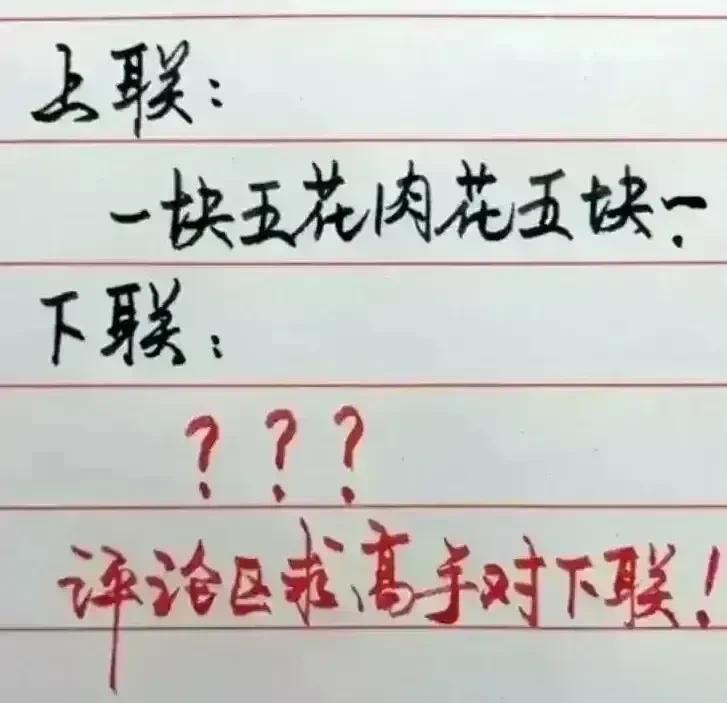 上联：
一块五花肉花五块一
下联：
???
评论区求高手对下联！